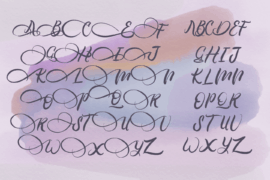 A B C D E F ABCDEF
G H I J GHIJ
K L M N KLMN
O P Q R OPQR
R S T U V STUV
W X Y Z WXYZ